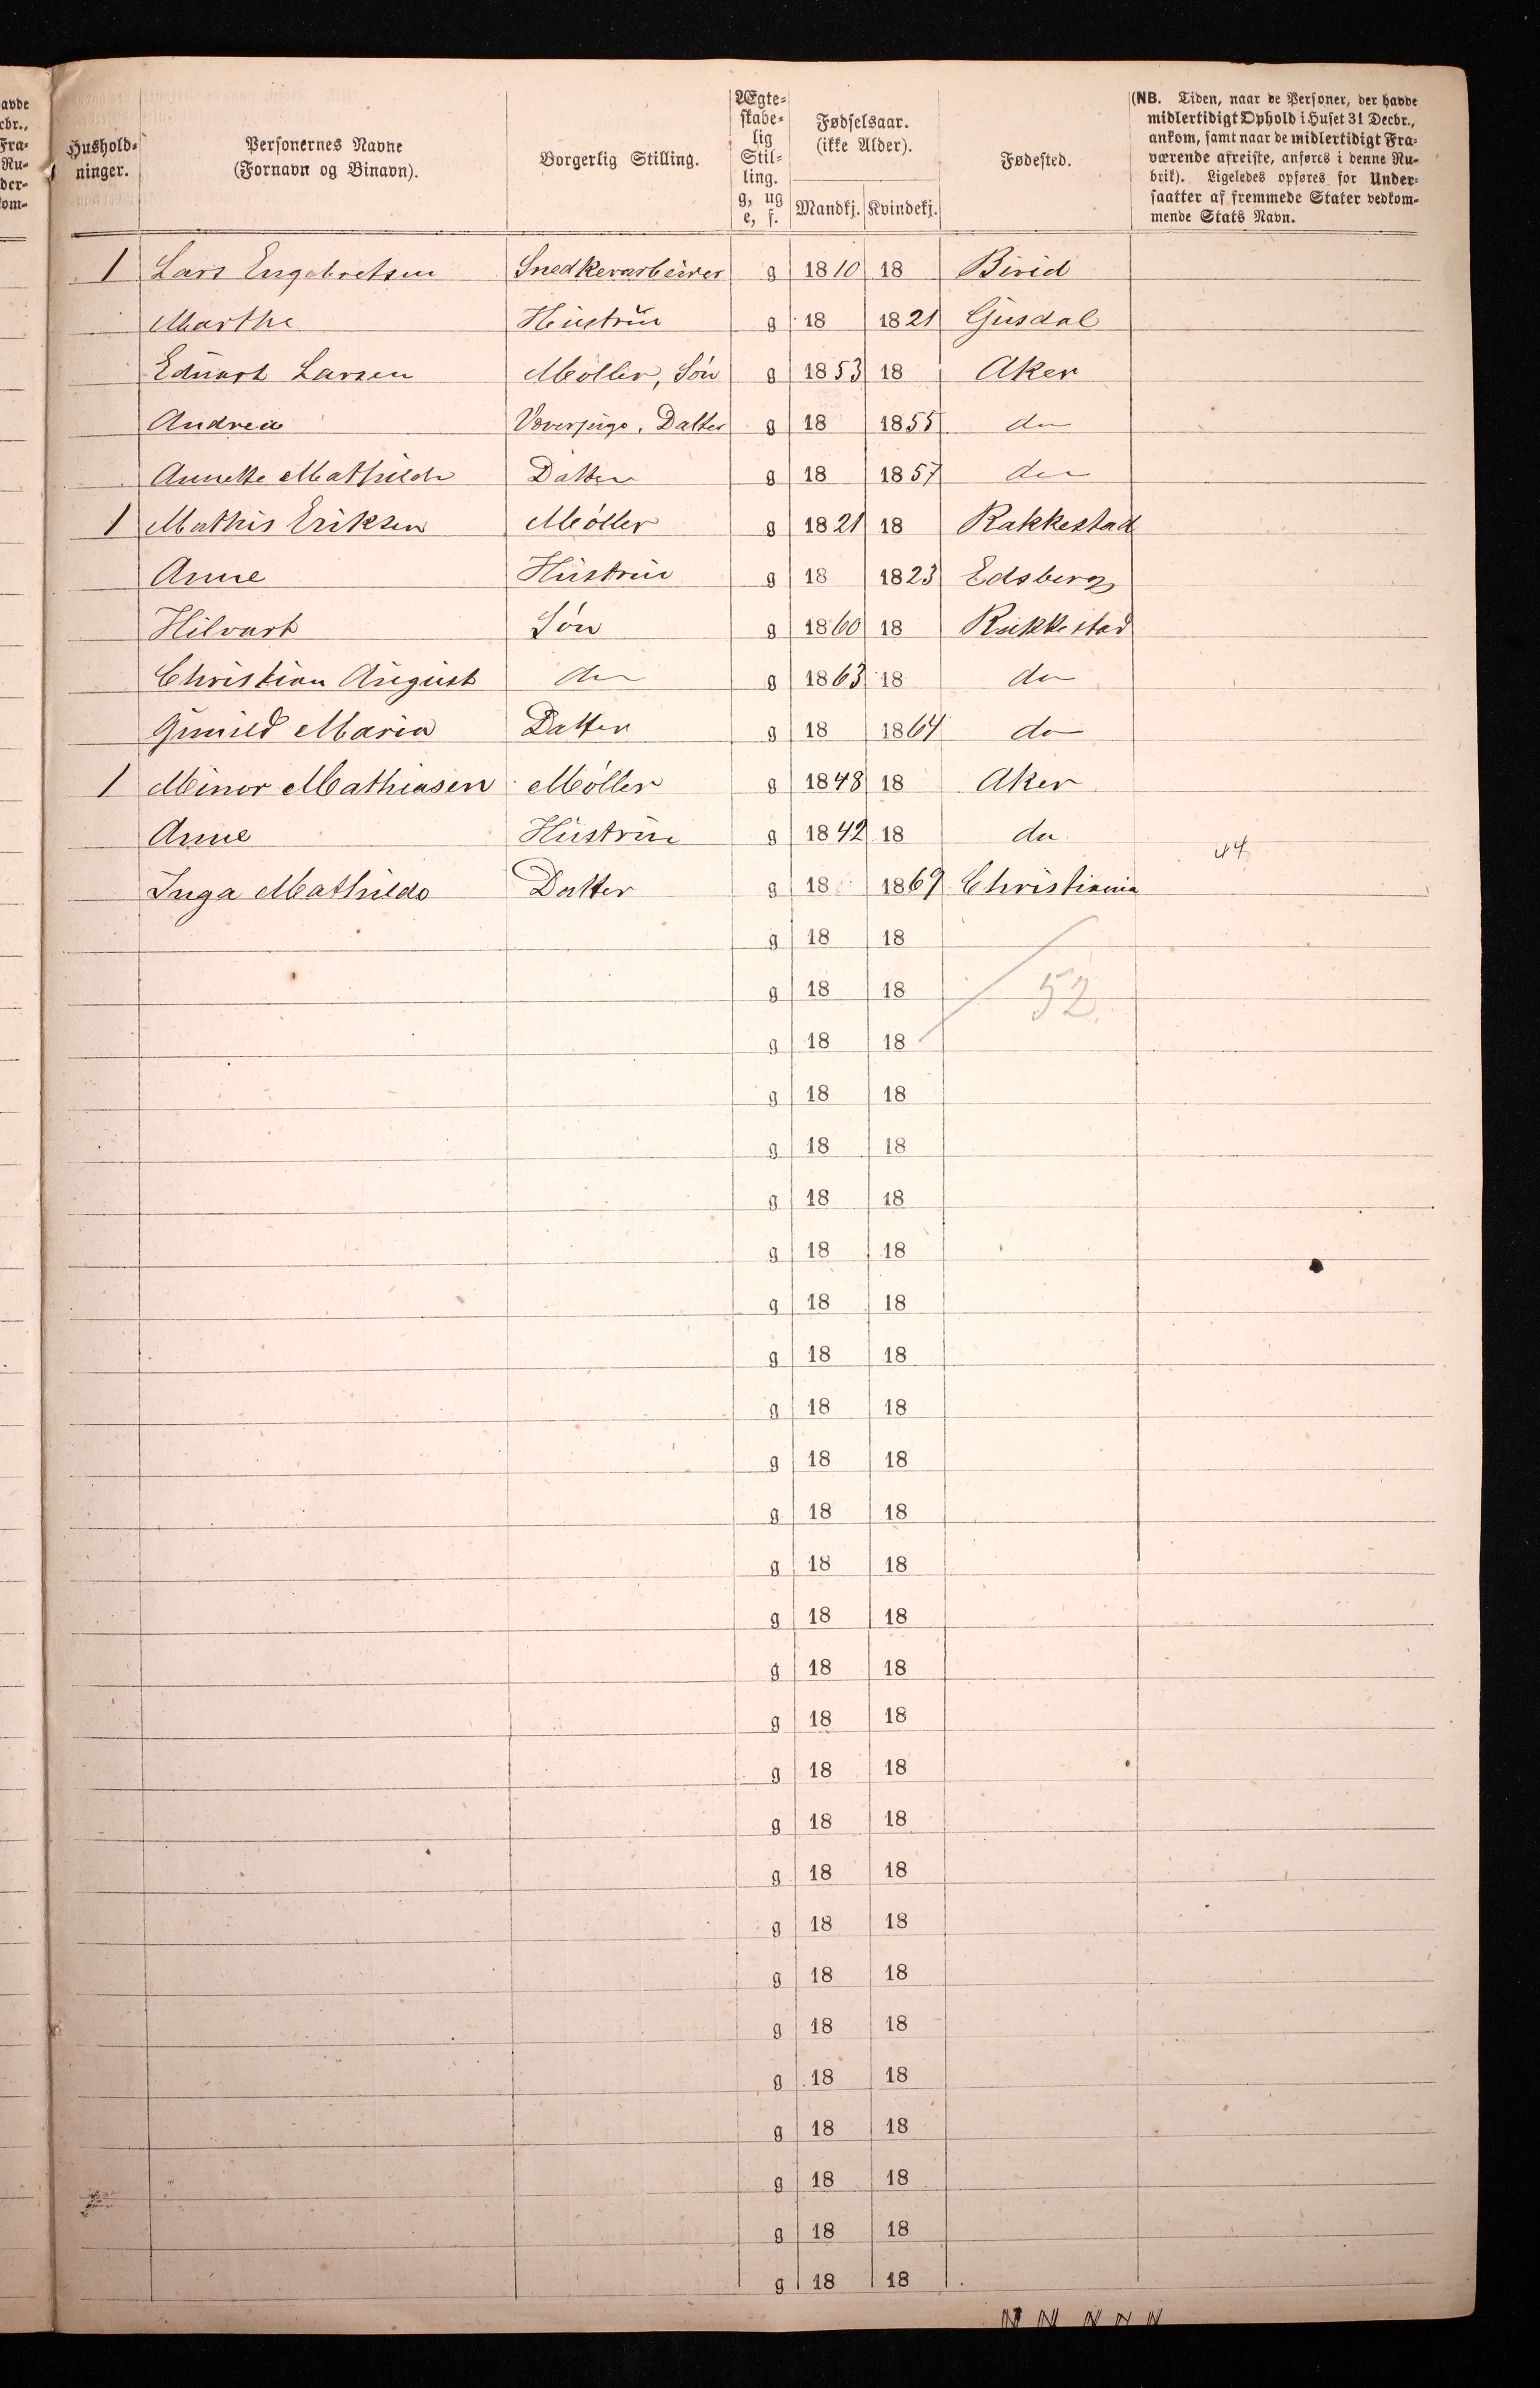 avde
cbr.,
Fra-
Ru-
der-
kom-
Hushold-
ninger.
Personernes Navne
(Fornavn og Binavn).
Borgerlig Stilling.
Ægte-
skabe-
lig
Stil-
ling.
g, ug
e, f.
Fødselsaar.
(ikke Alder).
Mandkj. Kvindekj.
Fødested.
(NB. Tiden, naar de Personer, der havde
midlertidigt Ophold i Huset 31 Decbr.,
ankom, samt naar de midlertidigt Fra-
værende afreiste, anføres i denne Ru-
brik). Ligeledes opføres for Under-
saatter af fremmede Stater vedkom-
mende Stats Navn.
1 Lars Engebretsen Snedkerarbeider g 1810 18 Birid
Marthe Hustru g 18 1821 Gusdal
Eduart Larsen Møller, Søn g 1853 18 Aker
Andrea Datter g 18 1855 do
Annette Mathilde Datter g 18 1857 do
1 Mathis Eriksen Møller g 1821 18 Rakkestad
Anne Hustru g 18 1823 Edsberg
Hilvart Søn g 1860 18 Rakkestad
Christian August do g 1863 18 do
Gunild Maria Datter g 18 1864 do
1 Minor Mathiasen Møller g 1848 18 Aker
Anne Hustru g 1842 18 do
44
Inga Mathilde Datter g 18 1869 Christiania
g 18 18
g 18 18 52
g 18 18
g 18 18
g 18 18
g 18 18
g 18 18
g 18 18
g 18 18
g 18 18
g 18 18
g 18 18
g 18 18
g 18 18
g 18 18
g 18 18
g 18 18
g 18 18
g 18 18
g 18 18
g 18 18
g 18 18
g 18 18
g 18 18
g 18 18
g 18 18
g 18 18